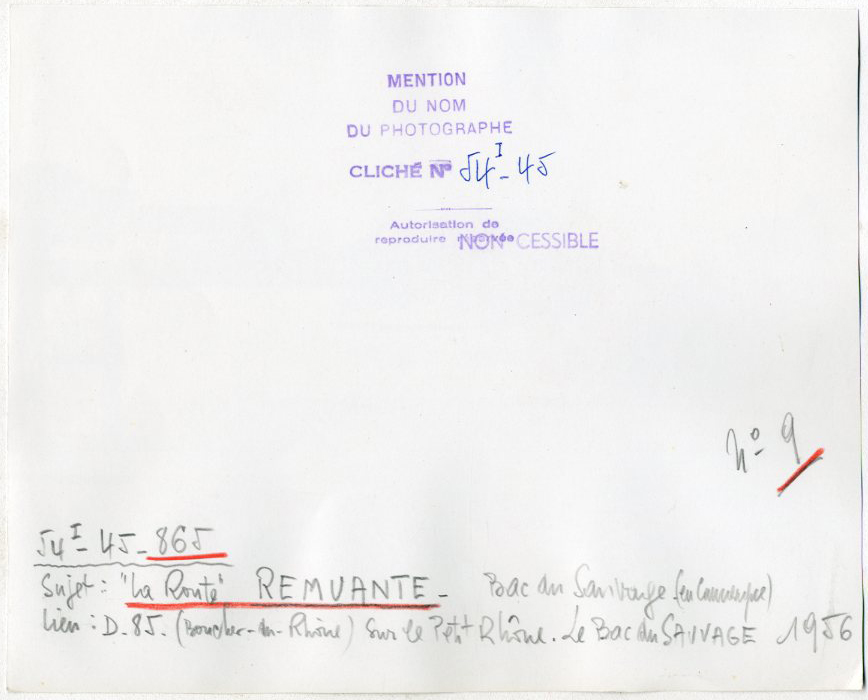 MENTION
DU NOM
DU PHOTOGRAPHE
CLICHÉ Nº 54 I - 45
Autorisation de
reproduire réservée NON CESSIBLE
Nº 9
54 I - 45 - 865
Sujet : "La Route" REMUANTE - Bac du Sauvage (en Camargue)
Lieu : D. 85. (Bouches-du-Rhône) Sur le Petit Rhône. Le Bac du SAUVAGE 1956